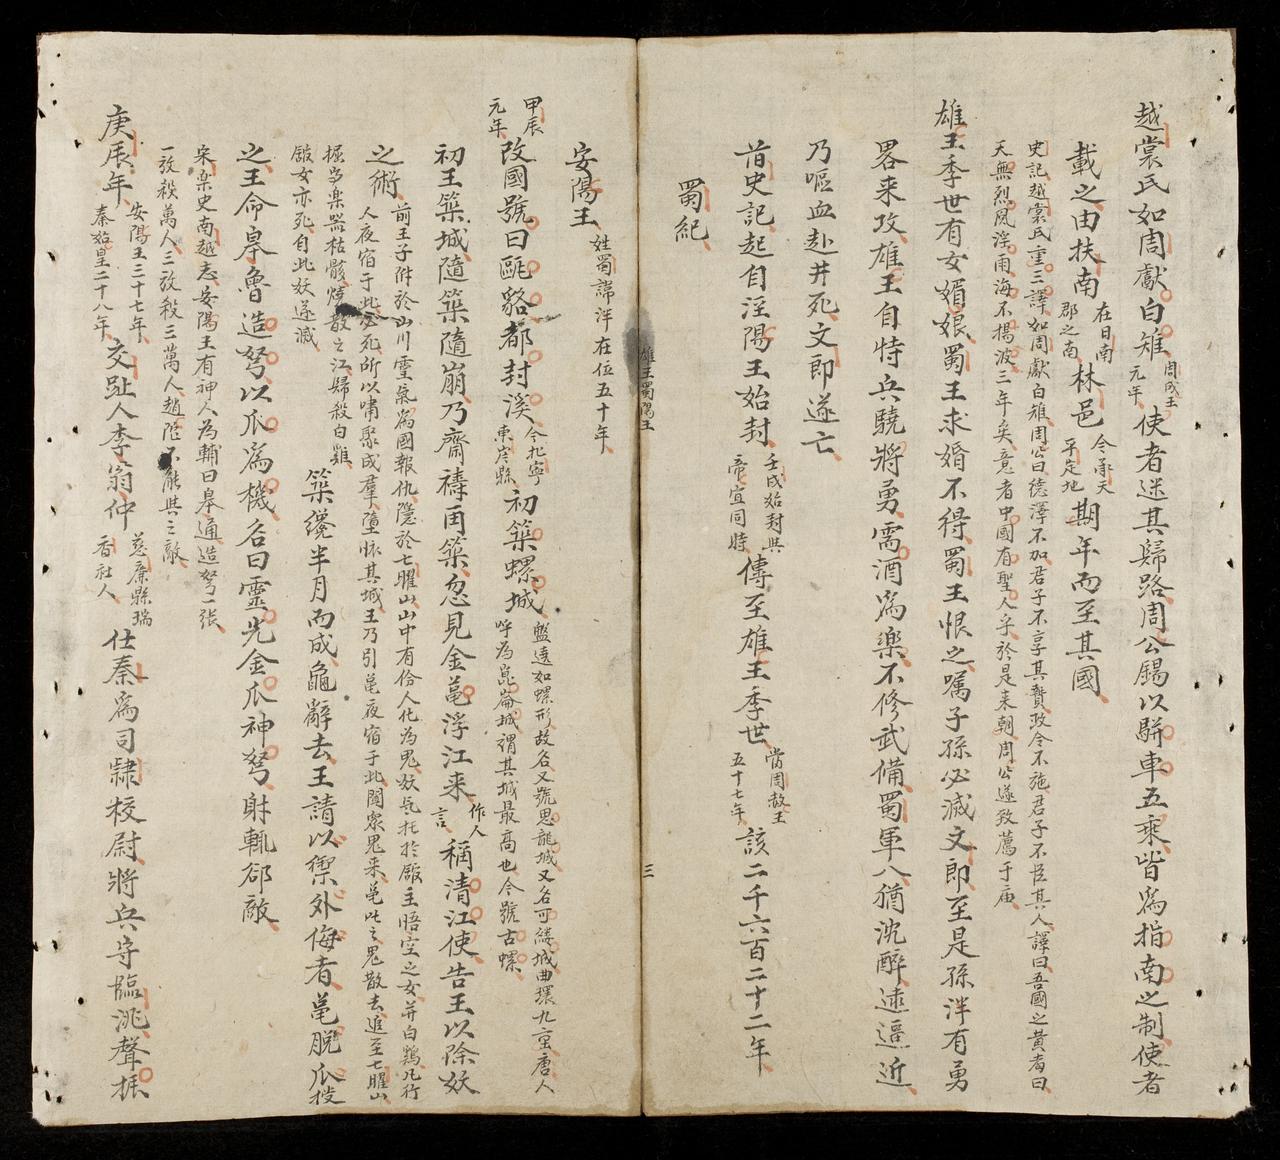 越裳氏如周獻白雉周成王元年使者迷其歸路周公錫以駢車五乘皆爲指南之制使者
載之由扶南在日南郡之南林邑今承天平定地期年而至其國
史記越裳氏重三譯如周獻白雉周公曰德澤不加君子不享其贄政令不施君子不臣其人譯曰吾國之黄耉曰
天無烈風淫雨海不揚波三年矣意者中國有聖人乎於是来朝周公遂致薦于庙
雄王季世有女媚娘蜀王求婚不得蜀王恨之嘱子孫必滅文郎至是孫泮有勇
畧来攻雄王自恃兵驍將勇需酒爲樂不修武備蜀軍入猶沈醉逮逼近
乃嘔血赴井死文郎遂亡
昔史記起自涇陽王始封壬戌始封與帝宜同時傳至雄王季世當周赧王五十七年該二千六百二十二年
蜀紀
雄王蜀陽王
三
安陽王姓蜀諱泮在位五十年
甲辰元年改國號曰甌貉都封溪今北寧東岸縣初築螺城盤遶如螺形故名又號思龍城又名可縷城曲環九重唐人呼为崑崙城謂其城最高也今號古螺
初王築城隨築隨崩乃齋禱再築忽見金黾浮江来作人言稱清江使告王以除妖
之術前王子附於山川靈氣爲國報仇隱於七矅山山中有伶人化为鬼妖氣托於厰主悟空之女并白鷄凡行
人夜宿于此必死所以嘯聚成羣墮怀其城王乃引黾夜宿于此閣衆鬼来黾叱之鬼散去追至七矅山
掘得樂器枯骸燒散之江婦殺白鷄
館女亦死自此妖遂滅
築纔半月而成龜辭去王請以禦外侮者黾脱爪授
之王命皋魯造弩以爪爲機名曰靈光金爪神弩射輒郤敵
宋樂史南越志安陽王有神人为輔曰皋通造弩一張
一放殺萬人三放殺三萬人趙陀不能與之敵
庚辰年安陽王三十七年秦始皇二十八年交趾人李翁仲慈廉縣瑞香社人仕秦爲司隸校尉將兵守臨洮聲振